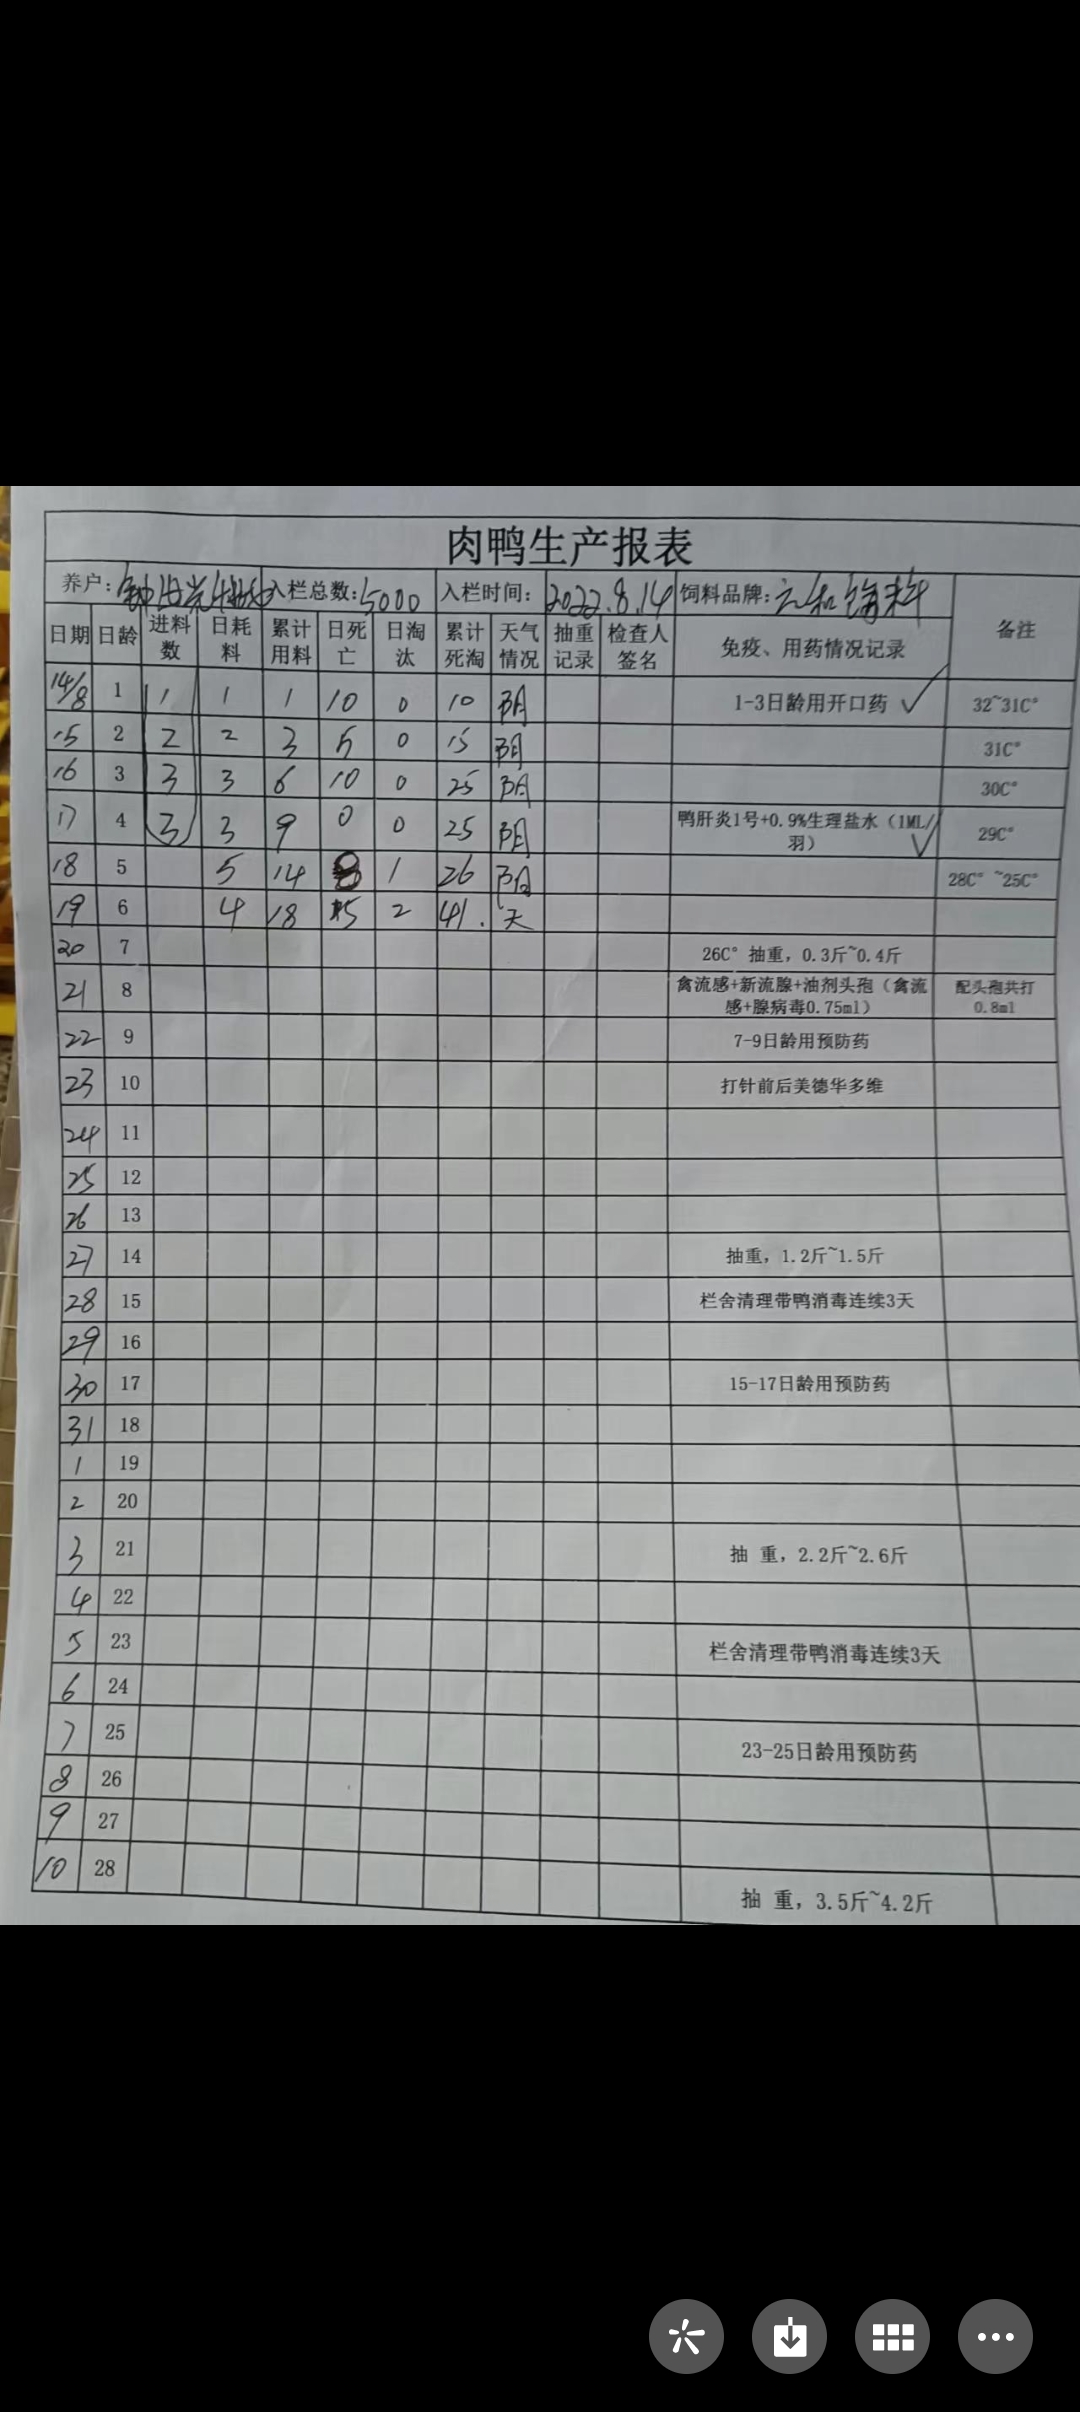 肉鸭生产报表
养户： 入栏总数:5000 入栏时间: 2022.8.14 饲料品牌:
日期 日龄 进料数 日耗料 累计用料 日死亡 日淘汰 累计死淘 天气情况 抽重记录 检查人签名 免疫、用药情况记录 备注
14/8 1 1 1 1 10 0 10 阴 1-3日龄用开口药 ✓ 32~31C°
15 2 2 2 3 5 0 15 阴 31C°
16 3 3 3 6 10 0 25 阴 30C°
17 4 3 3 9 0 0 25 阴 鸭肝炎1号+0.9%生理盐水（1ML/羽） ✓ 29C°
18 5 5 14 1 26 阴 28C° ~25C°
19 6 4 18 15 2 41. 天
20 7 26C° 抽重，0.3斤~0.4斤
21 8 禽流感+新流腺+油剂头孢（禽流感+腺病毒0.75ml） 配头孢共打0.8ml
22 9 7-9日龄用预防药
23 10 打针前后美德华多维
24 11
25 12
26 13
27 14 抽重，1.2斤~1.5斤
28 15 栏舍清理带鸭消毒连续3天
29 16
30 17 15-17日龄用预防药
31 18
1 19
2 20
3 21 抽 重，2.2斤~2.6斤
4 22
5 23 栏舍清理带鸭消毒连续3天
6 24
7 25 23-25日龄用预防药
8 26
9 27
10 28 抽 重，3.5斤~4.2斤